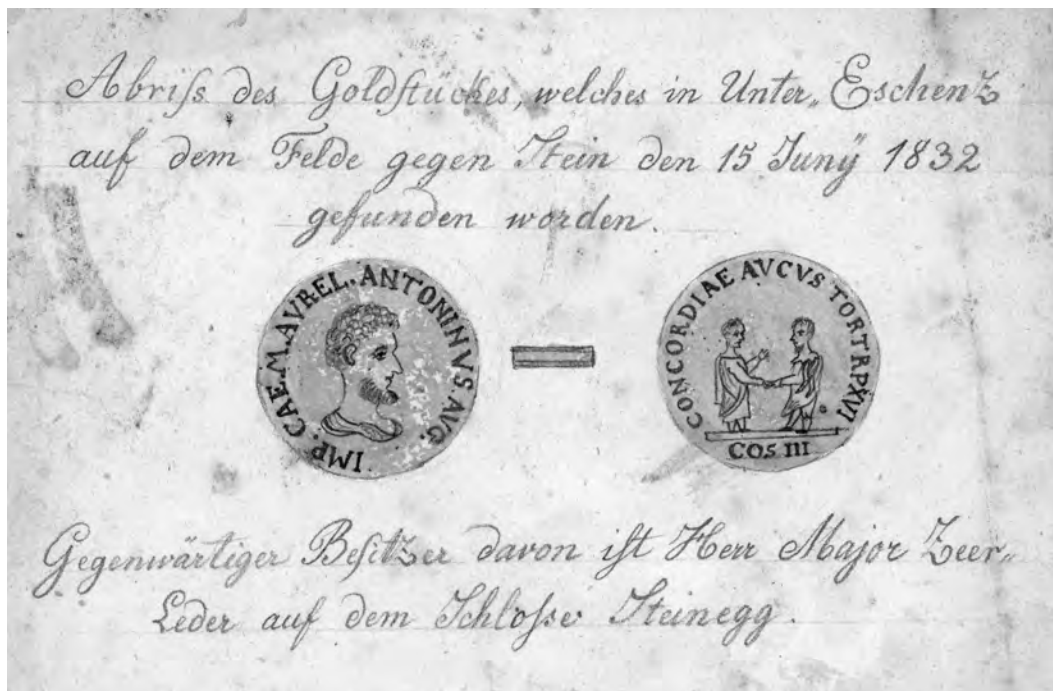 Abriſs des Goldſtückes, welches in Unter„ Eschenz
auf dem Felde gegen Stein den 15 Junÿ 1832
gefunden worden.
IMP. CAE.M.AVREL.ANTONINVS.AVG.
CONCORDIAE AVCVS TORTRPXVI
COS III
Gegenwärtiger Beſitzer davon iſt Herr Major Zeer„
Leder auf dem Schloſse Steinegg.